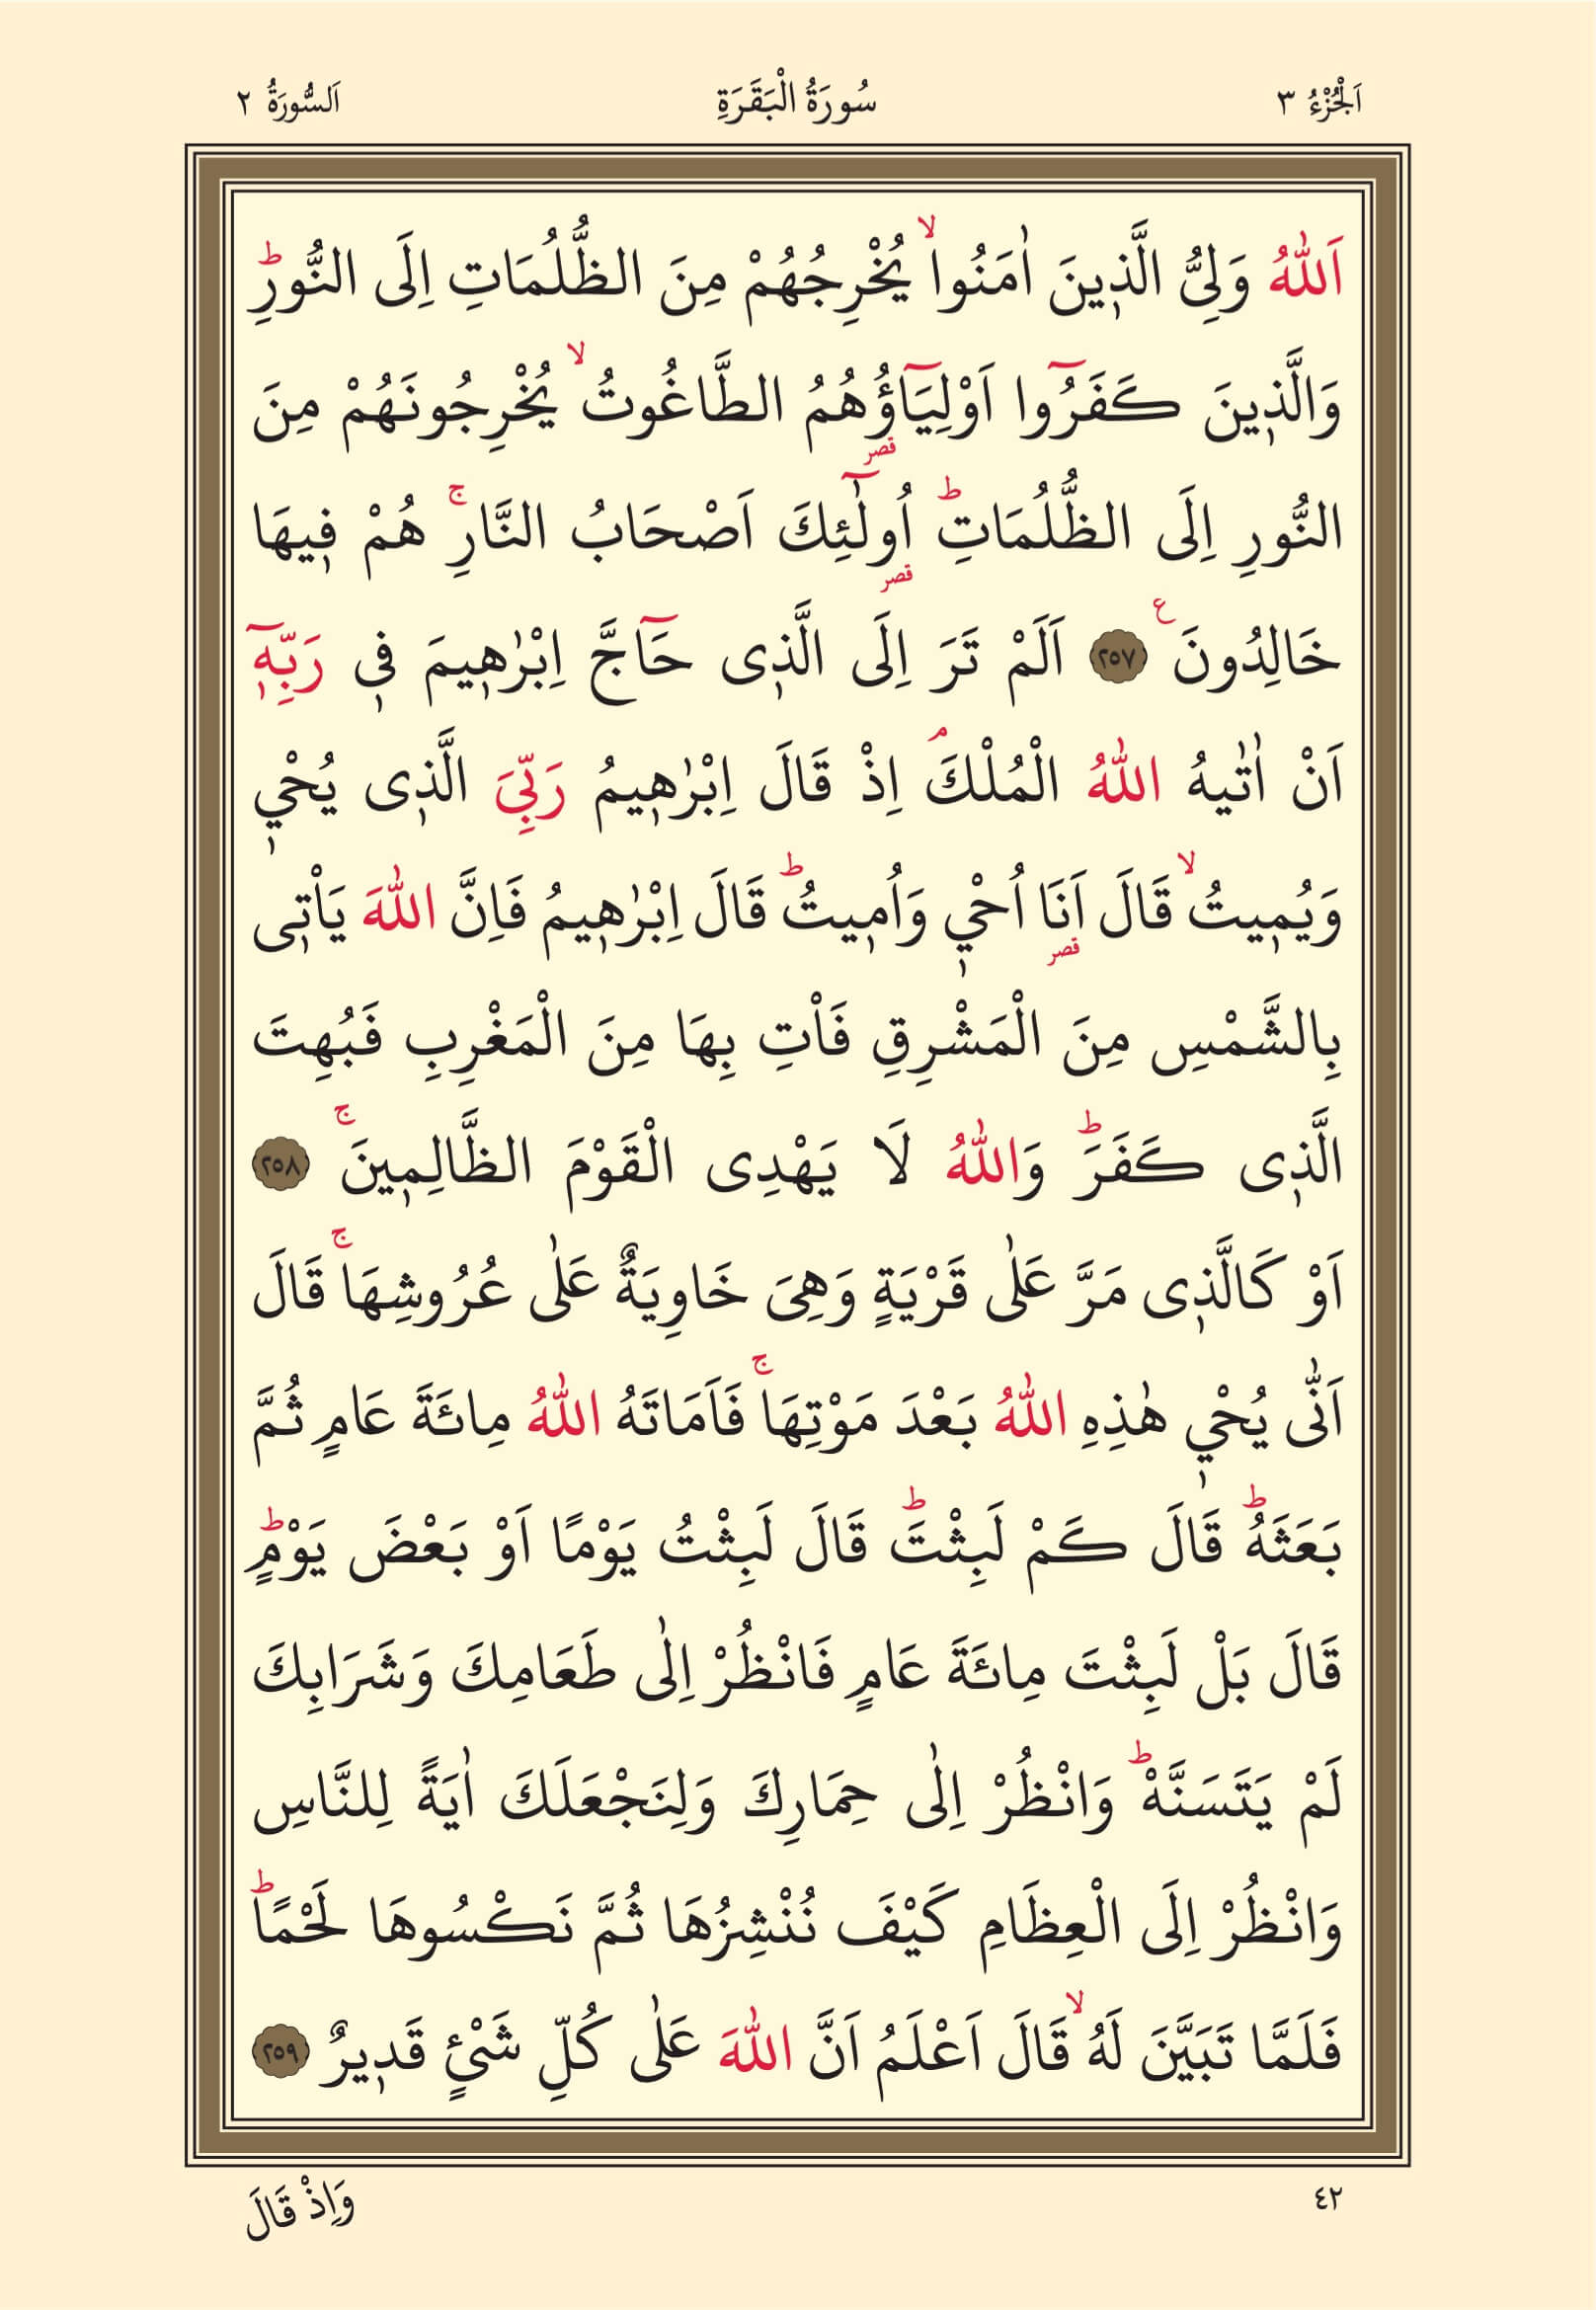 اَلْجُزْءُ ٣ سُورَةُ الْبَقَرَةِ اَلسُّورَةُ ٢
اَللّٰهُ وَلِيُّ الَّذٖينَ اٰمَنُواۙ يُخْرِجُهُمْ مِنَ الظُّلُمَاتِ اِلَى النُّورِؕ
وَالَّذٖينَ كَفَرُٓوا اَوْلِيَٓاؤُ۬هُمُ الطَّاغُوتُۙ يُخْرِجُونَهُمْ مِنَ
قصر
النُّورِ اِلَى الظُّلُمَاتِؕ اُو۬لٰٓئِكَ اَصْحَابُ النَّارِۚ هُمْ فٖيهَا
قصر
خَالِدُونَࣖ ﴿٢٥٧﴾ اَلَمْ تَرَ اِلَى الَّذٖى حَٓاجَّ اِبْرٰهٖيمَ فٖى رَبِّهٖٓ
اَنْ اٰتٰيهُ اللّٰهُ الْمُلْكَۘ اِذْ قَالَ اِبْرٰهٖيمُ رَبِّىَ الَّذٖى يُحْيٖ
وَيُمٖيتُۙ قَالَ اَنَا اُحْيٖ وَاُمٖيتُؕ قَالَ اِبْرٰهٖيمُ فَاِنَّ اللّٰهَ يَاْتٖى
قصر
بِالشَّمْسِ مِنَ الْمَشْرِقِ فَاْتِ بِهَا مِنَ الْمَغْرِبِ فَبُهِتَ
الَّذٖى كَفَرَؕ وَاللّٰهُ لَا يَهْدِى الْقَوْمَ الظَّالِمٖينَۚ ﴿٢٥٨﴾
اَوْ كَالَّذٖى مَرَّ عَلٰى قَرْيَةٍ وَهِىَ خَاوِيَةٌ عَلٰى عُرُوشِهَاۚ قَالَ
اَنّٰى يُحْيٖ هٰذِهِ اللّٰهُ بَعْدَ مَوْتِهَاۚ فَاَمَاتَهُ اللّٰهُ مِائَةَ عَامٍ ثُمَّ
بَعَثَهُؕ قَالَ كَمْ لَبِثْتَؕ قَالَ لَبِثْتُ يَوْمًا اَوْ بَعْضَ يَوْمٍؕ
قَالَ بَلْ لَبِثْتَ مِائَةَ عَامٍ فَانْظُرْ اِلٰى طَعَامِكَ وَشَرَابِكَ
لَمْ يَتَسَنَّهْؕ وَانْظُرْ اِلٰى حِمَارِكَ وَلِنَجْعَلَكَ اٰيَةً لِلنَّاسِ
وَانْظُرْ اِلَى الْعِظَامِ كَيْفَ نُنْشِزُهَا ثُمَّ نَكْسُوهَا لَحْمًاؕ
فَلَمَّا تَبَيَّنَ لَهُۙ قَالَ اَعْلَمُ اَنَّ اللّٰهَ عَلٰى كُلِّ شَىْئٍ قَدٖيرٌ ﴿٢٥٩﴾
٤٢ وَاِذْ قَالَ